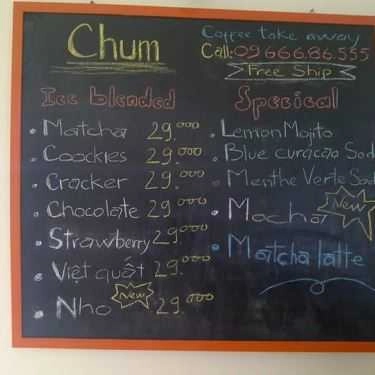 Chum
Coffee take away
Call: 09 666.86.555
Free Ship
Ice blended
Matcha 29.000
Coockies 29.000
Cracker 29.000
Chocolate 29.000
Strawberry 29.000
Việt quất 29.000
Nho New 29.000
Sperical
Lemon Mojito
Blue curaçao Sod
Menthe Verte Sod
Macha New
Matcha latte